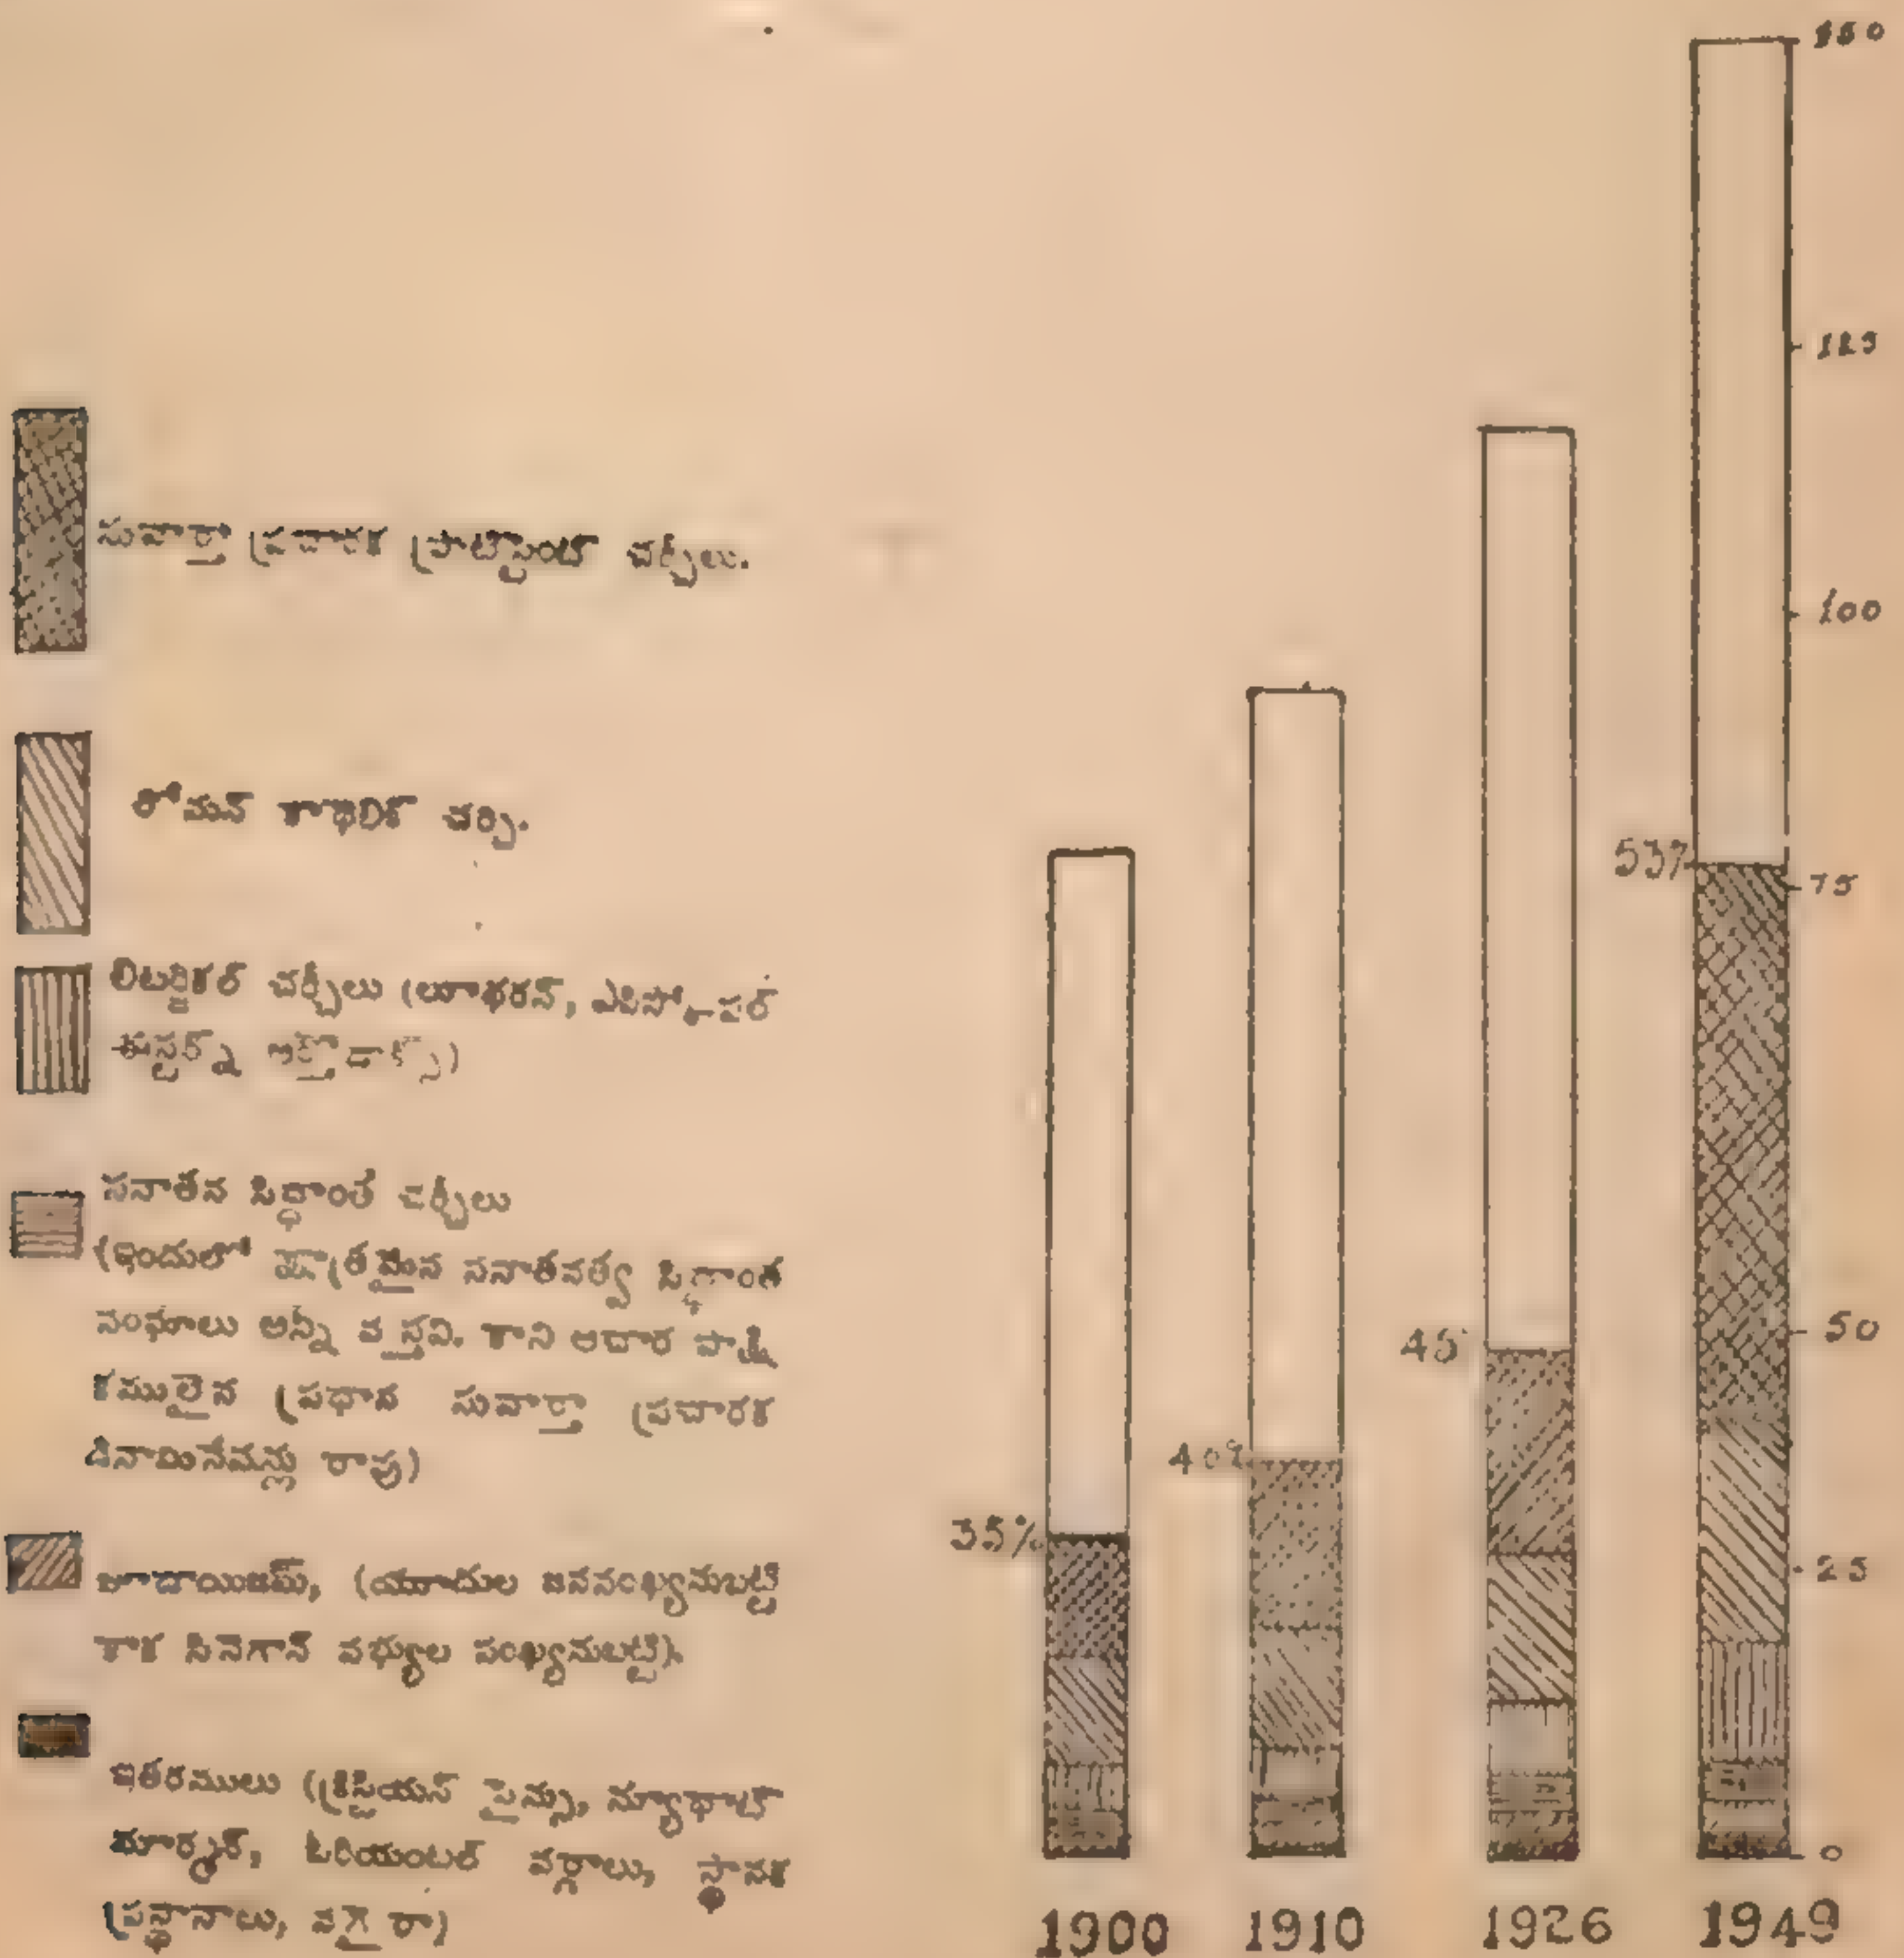 సువార్తా ప్రచారక ప్రాటెస్టెంట్ చర్చీలు.
రోమన్ కాథలిక్ చర్చి.
లిటర్జికల్ చర్చీలు (లూథరన్, ఎపిస్కోపల్
ఈస్టర్న్ ఆర్తోడాక్స్)
సనాతన సిద్ధాంత చర్చీలు
(ఇందులో సనాతనత్వ సిద్ధాంత
సంఘాలు అన్నీ వస్తవి. కాని ఆచార
కములైన ప్రధాన సువార్తా ప్రచారక
డినామినేషన్లు రావు)
జూడాయిజమ్, (యూదుల జనసంఖ్యనుబట్టి
కాక సినెగాగ్ సభ్యుల సంఖ్యనుబట్టి).
ఇతరములు (క్రిస్టియన్ సైన్సు, న్యూథాట్
మార్మన్, ఓరియంటల్ వర్గాలు, స్థానిక
ప్రస్థానాలు, వగైరా)
150
125
100
53%
75
50
45
40%
35%
25
0
1900 1910 1926 1949